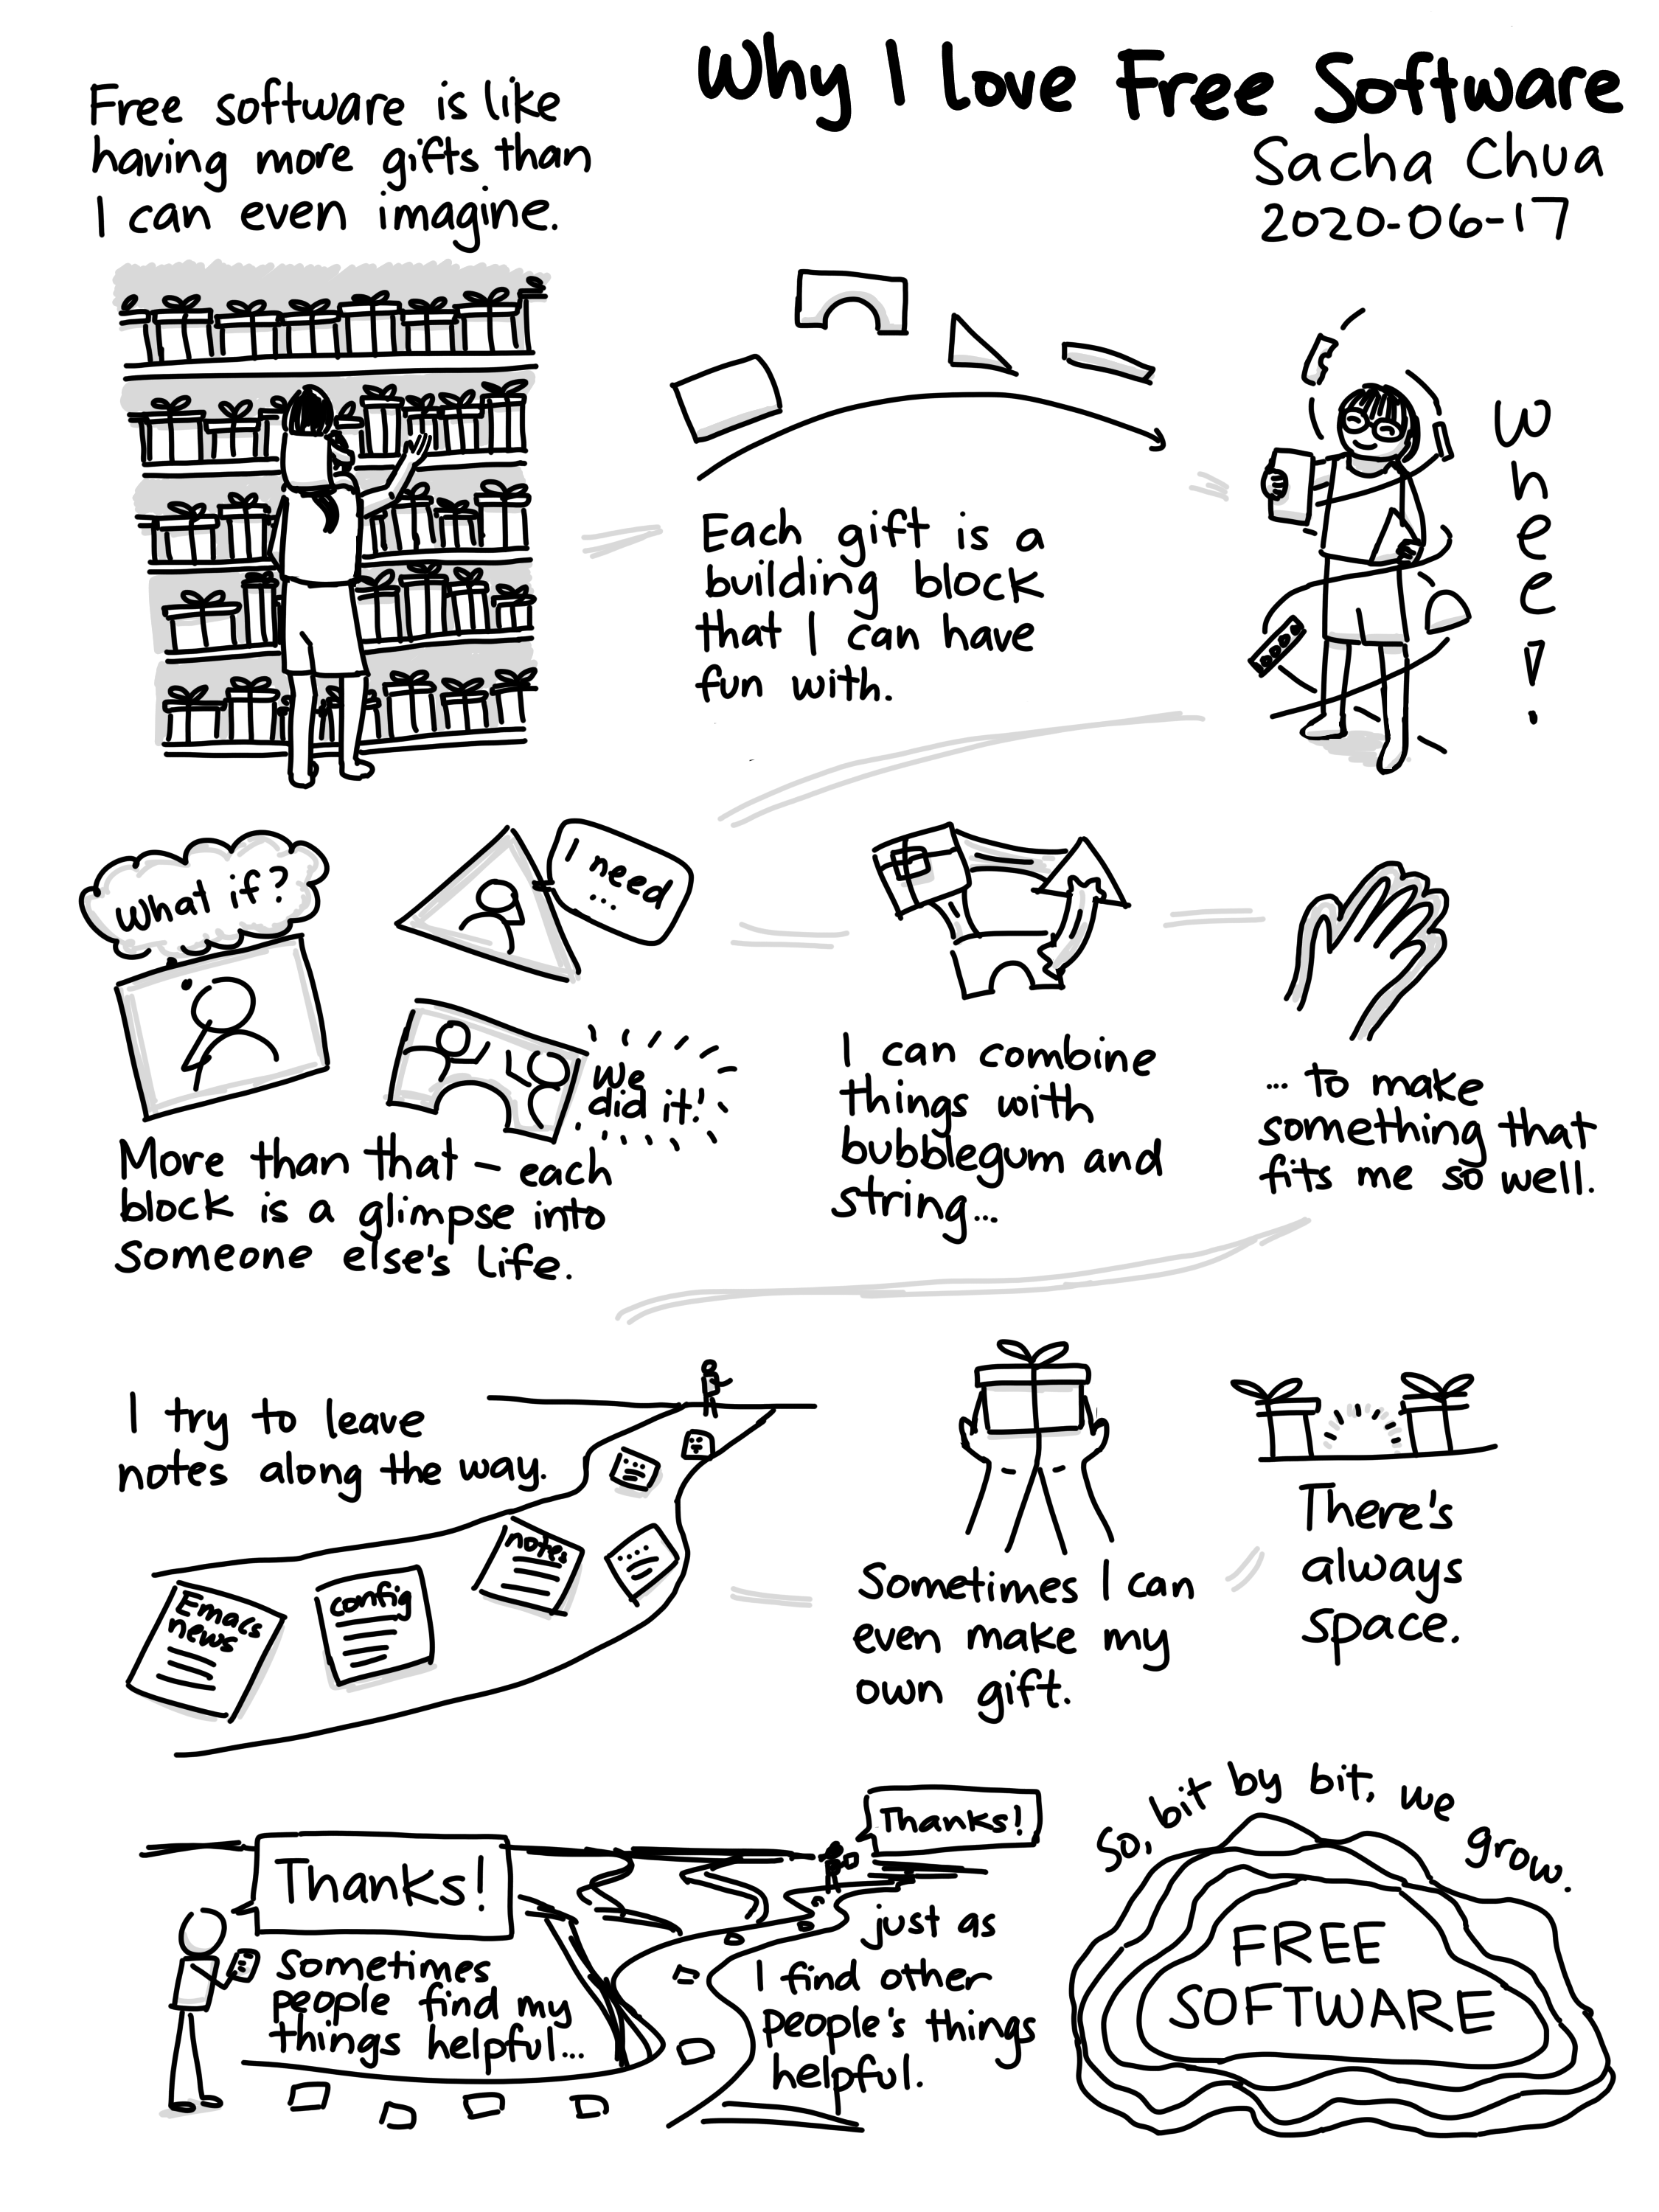 Why I Love Free Software
Sacha Chua
2020-06-17
Free software is like
having more gifts than
I can even imagine.
Each gift is a
building block
that I can have
fun with.
Whee!
What if?
I need
...
We
did it!
More than that - each
block is a glimpse into
someone else's life.
I can combine
things with
bubblegum and
string...
... to make
something that
fits me so well.
I try to leave
notes along the way.
Emacs
news
config
notes
Sometimes I can
even make my
own gift.
There's
always
space.
Thanks!
Sometimes
people find my
things helpful...
Thanks!
just as
I find other
people's things
helpful.
So, bit by bit, we grow.
FREE
SOFTWARE